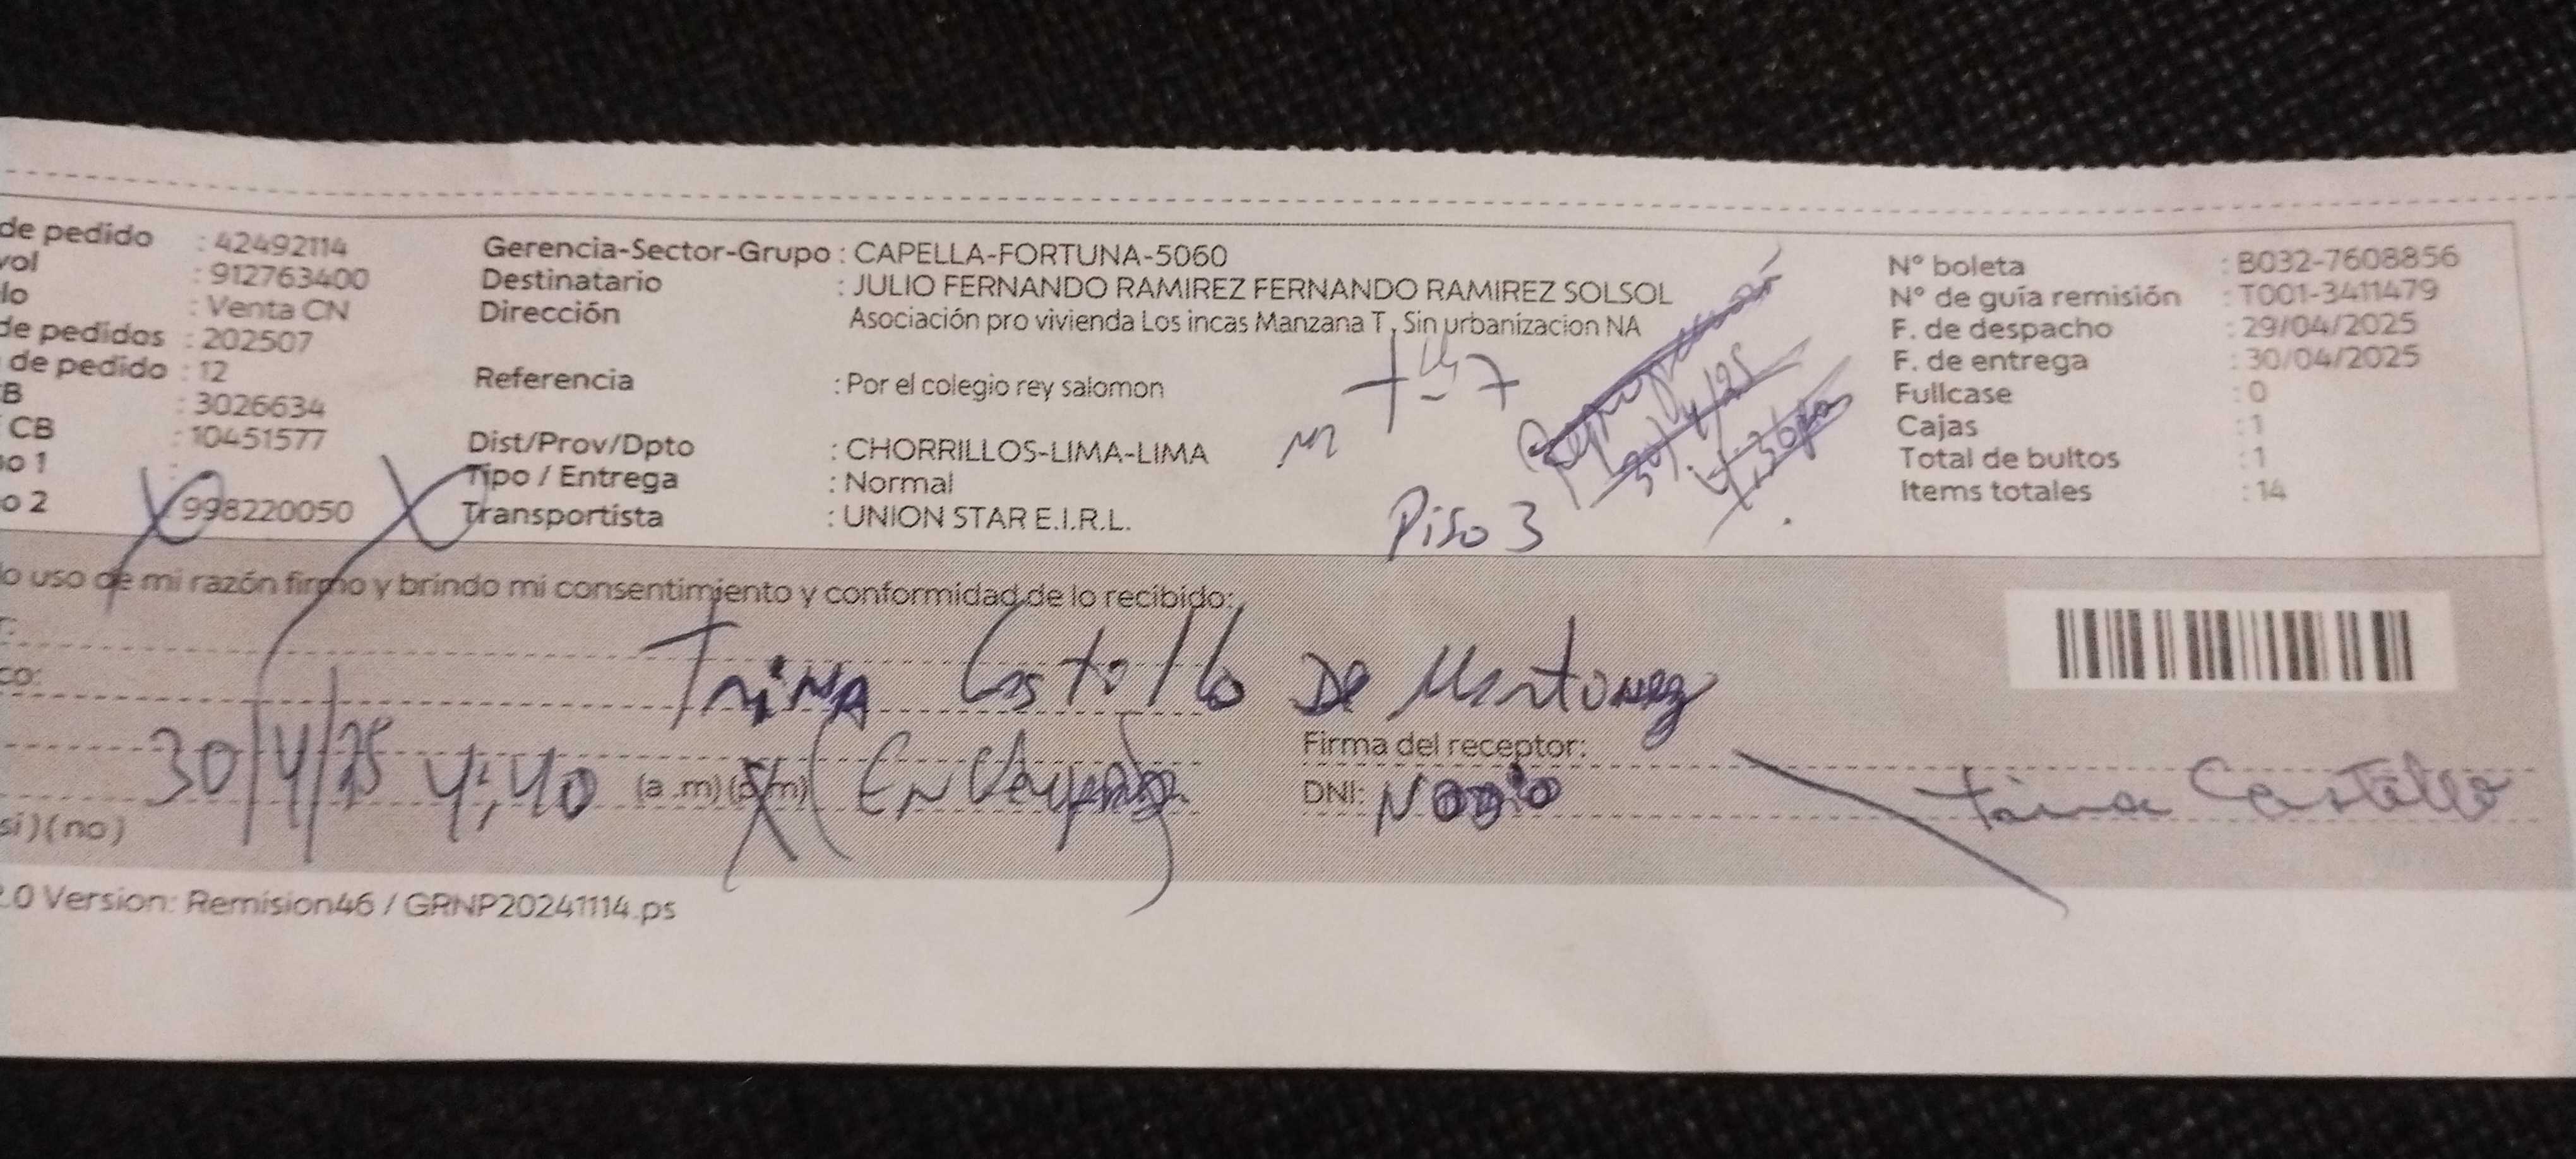 de pedido : 42492114
vol : 912763400
lo : Venta CN
de pedidos : 202507
de pedido : 12
B : 3026634
CB : 10451577
o 1 :
o 2 998220050
Gerencia-Sector-Grupo : CAPELLA-FORTUNA-5060
Destinatario : JULIO FERNANDO RAMIREZ FERNANDO RAMIREZ SOLSOL
Dirección Asociación pro vivienda Los incas Manzana T , Sin urbanizacion NA
Referencia : Por el colegio rey salomon
Dist/Prov/Dpto : CHORRILLOS-LIMA-LIMA
Tipo / Entrega : Normal
Transportista : UNION STAR E.I.R.L.
Piso 3
30/4/25
4:30pm
Nº boleta : B032-7608856
Nº de guía remisión : T001-3411479
F. de despacho : 29/04/2025
F. de entrega : 30/04/2025
Fullcase : 0
Cajas : 1
Total de bultos : 1
Items totales : 14
lo uso de mi razón firmo y brindo mi consentimiento y conformidad de lo recibido:
Trina Castillo De
co:
Firma del receptor:
30/4/25 4:40 (a .m) (p.m) (En
DNI:
Trina Castillo
si ) ( no )
.0 Version: Remision46 / GRNP20241114.ps